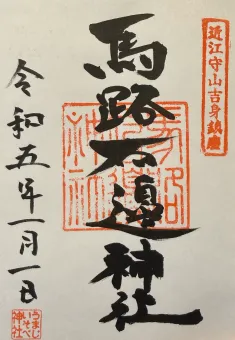 近江守山吉身鎮座
馬路石邉神社
令和五年一月一日
うまじ
いそべ
神社